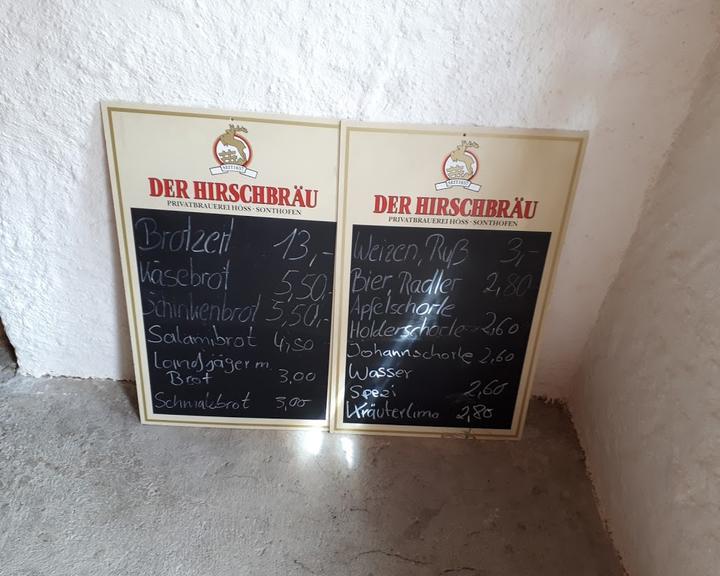 SEIT 1657
DER HIRSCHBRÄU
PRIVATBRAUEREI HÖSS · SONTHOFEN
Brotzeit 13,-
Käsebrot 5,50
Schinkenbrot 5,50,-
Salamibrot 4,50
Landjäger m.
Brot 3,00
Schmalzbrot 3,00
SEIT 1657
DER HIRSCHBRÄU
PRIVATBRAUEREI HÖSS · SONTHOFEN
Weizen, Ruß 3,-
Bier, Radler 2,80
Apfelschorle
Holderschorle 2,60
Johannschorle 2,60
Wasser
Spezi 2,60
Kräuterlimo 2,80